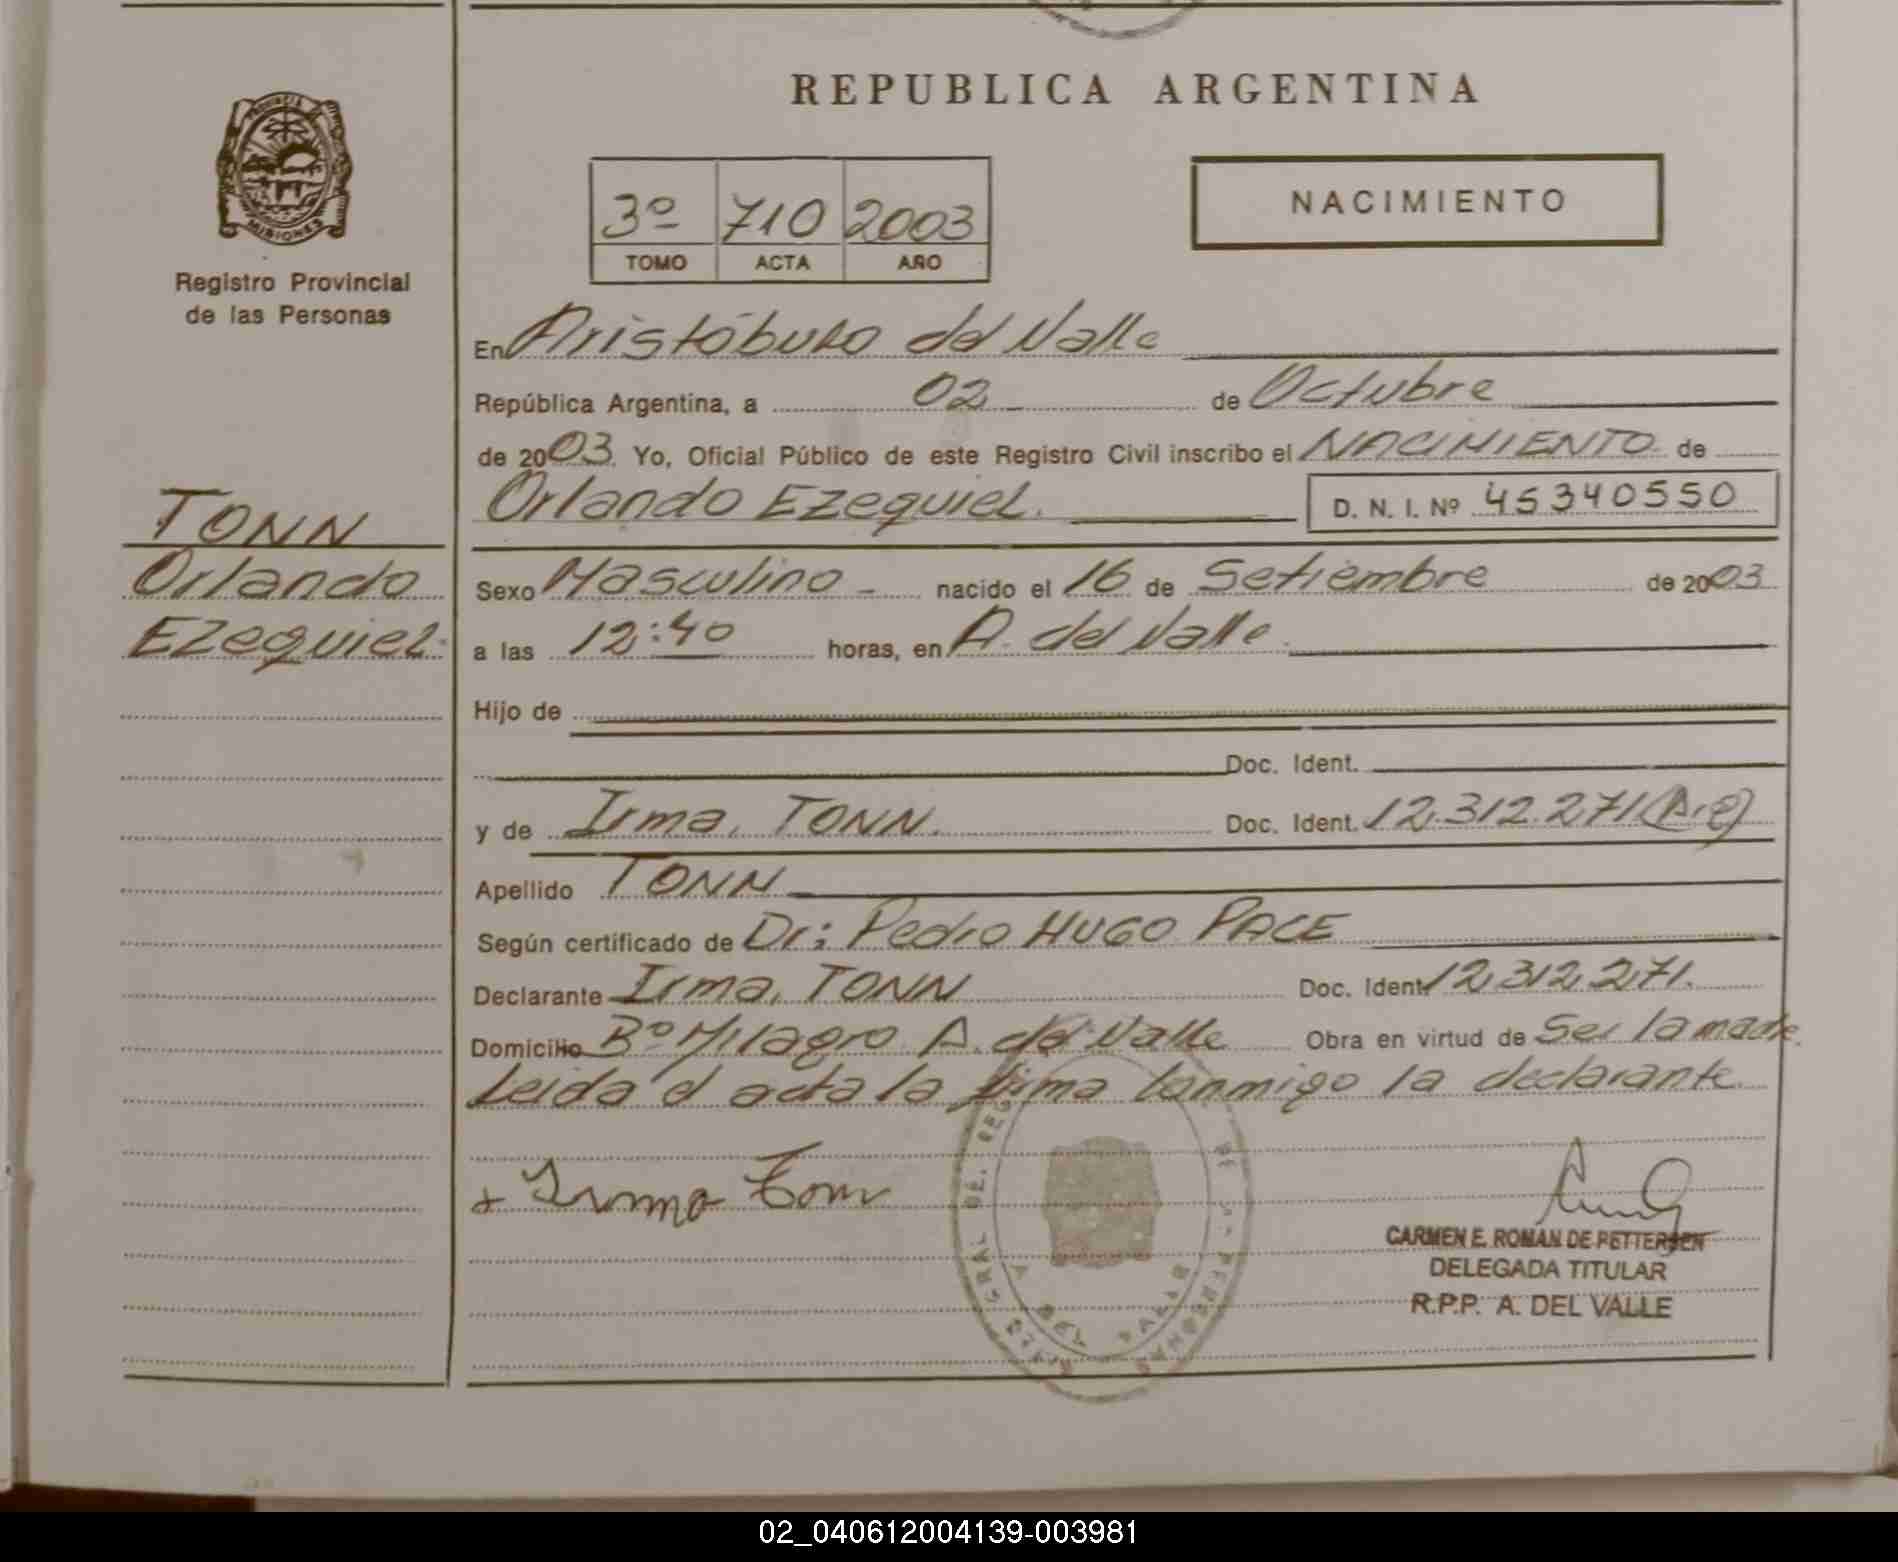 REPUBLICA ARGENTINA
PROVINCIA
MISIONES
Registro Provincial
de las Personas
3º 710 2003
TOMO ACTA AÑO
NACIMIENTO
En Aristóbulo del Valle
República Argentina, a 02 de Octubre
de 2003. Yo, Oficial Público de este Registro Civil inscribo el NACIMIENTO de
Orlando Ezequiel. D. N. I. Nº 45340550
TONN
Orlando
Ezequiel.
Sexo Masculino nacido el 16 de Setiembre de 2003
a las 12:40 horas, en A. del Valle.
Hijo de
Doc. Ident.
y de Irma, TONN. Doc. Ident. 12.312.271 (A.R)
Apellido TONN
Según certificado de Dr: Pedro HUGO PACE
Declarante Irma, TONN Doc. Ident. 12.312.271.
Domicilio Bº Milagro A. del Valle Obra en virtud de Ser la madre.
Leida el acta la firma conmigo la declarante
+ Irma Tonn
CARMEN E. ROMAN DE PETTERSEN
DELEGADA TITULAR
R.P.P. A. DEL VALLE
02_040612004139-003981